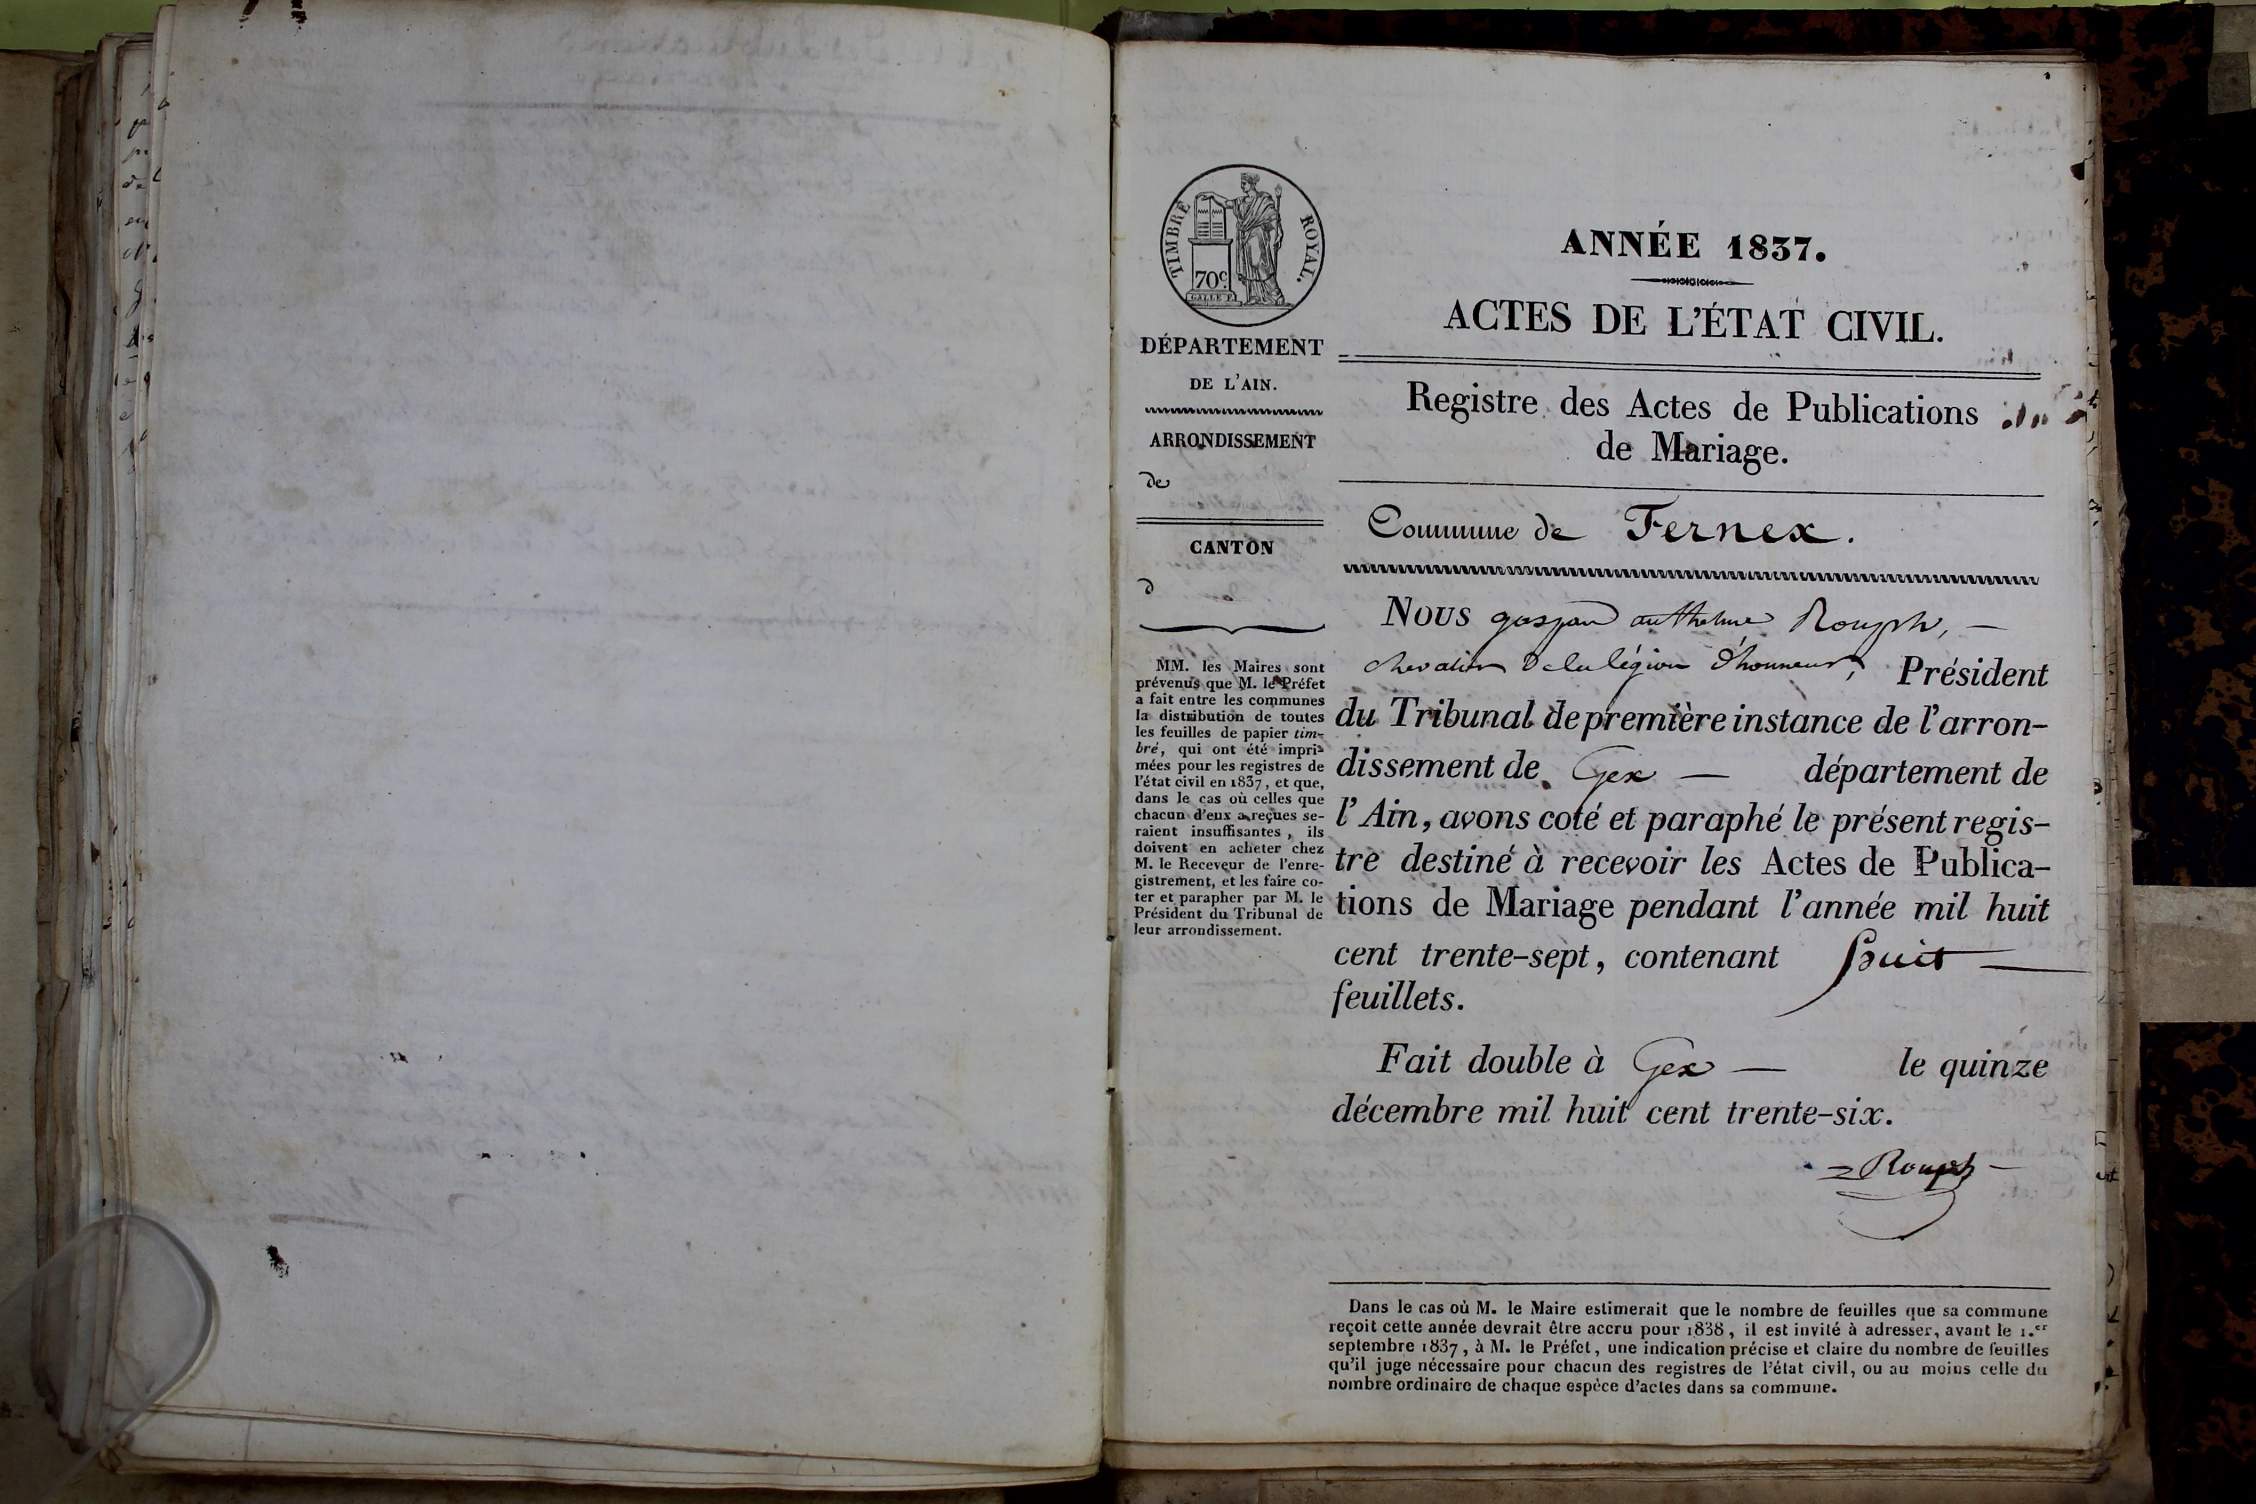 TIMBRE ROYAL.
70c.
GALLE F.
DÉPARTEMENT
DE L'AIN.
ARRONDISSEMENT
de
CANTON
d
MM. les Maires sont
prévenus que M. le Préfet
a fait entre les communes
la distribution de toutes
les feuilles de papier tim-
bré, qui ont été impri-
mées pour les registres de
l'état civil en 1837, et que,
dans le cas où celles que
chacun d'eux a reçues se-
raient insuffisantes, ils
doivent en acheter chez
M. le Receveur de l'enre-
gistrement, et les faire co-
ter et parapher par M. le
Président du Tribunal de
leur arrondissement.
ANNÉE 1837.
ACTES DE L'ÉTAT CIVIL.
Registre des Actes de Publications
de Mariage.
Commune de Fernex.
Nous gaspard anthelme Rouph,
chevalier de la légion d'honneur, Président
du Tribunal de première instance de l'arron-
dissement de Gex — département de
l'Ain, avons coté et paraphé le présent regis-
tre destiné à recevoir les Actes de Publica-
tions de Mariage pendant l'année mil huit
cent trente-sept, contenant huit —
feuillets.
Fait double à Gex — le quinze
décembre mil huit cent trente-six.
Rouph
Dans le cas où M. le Maire estimerait que le nombre de feuilles que sa commune
reçoit cette année devrait être accru pour 1838, il est invité à adresser, avant le 1.er
septembre 1837, à M. le Préfet, une indication précise et claire du nombre de feuilles
qu'il juge nécessaire pour chacun des registres de l'état civil, ou au moins celle du
nombre ordinaire de chaque espèce d'actes dans sa commune.